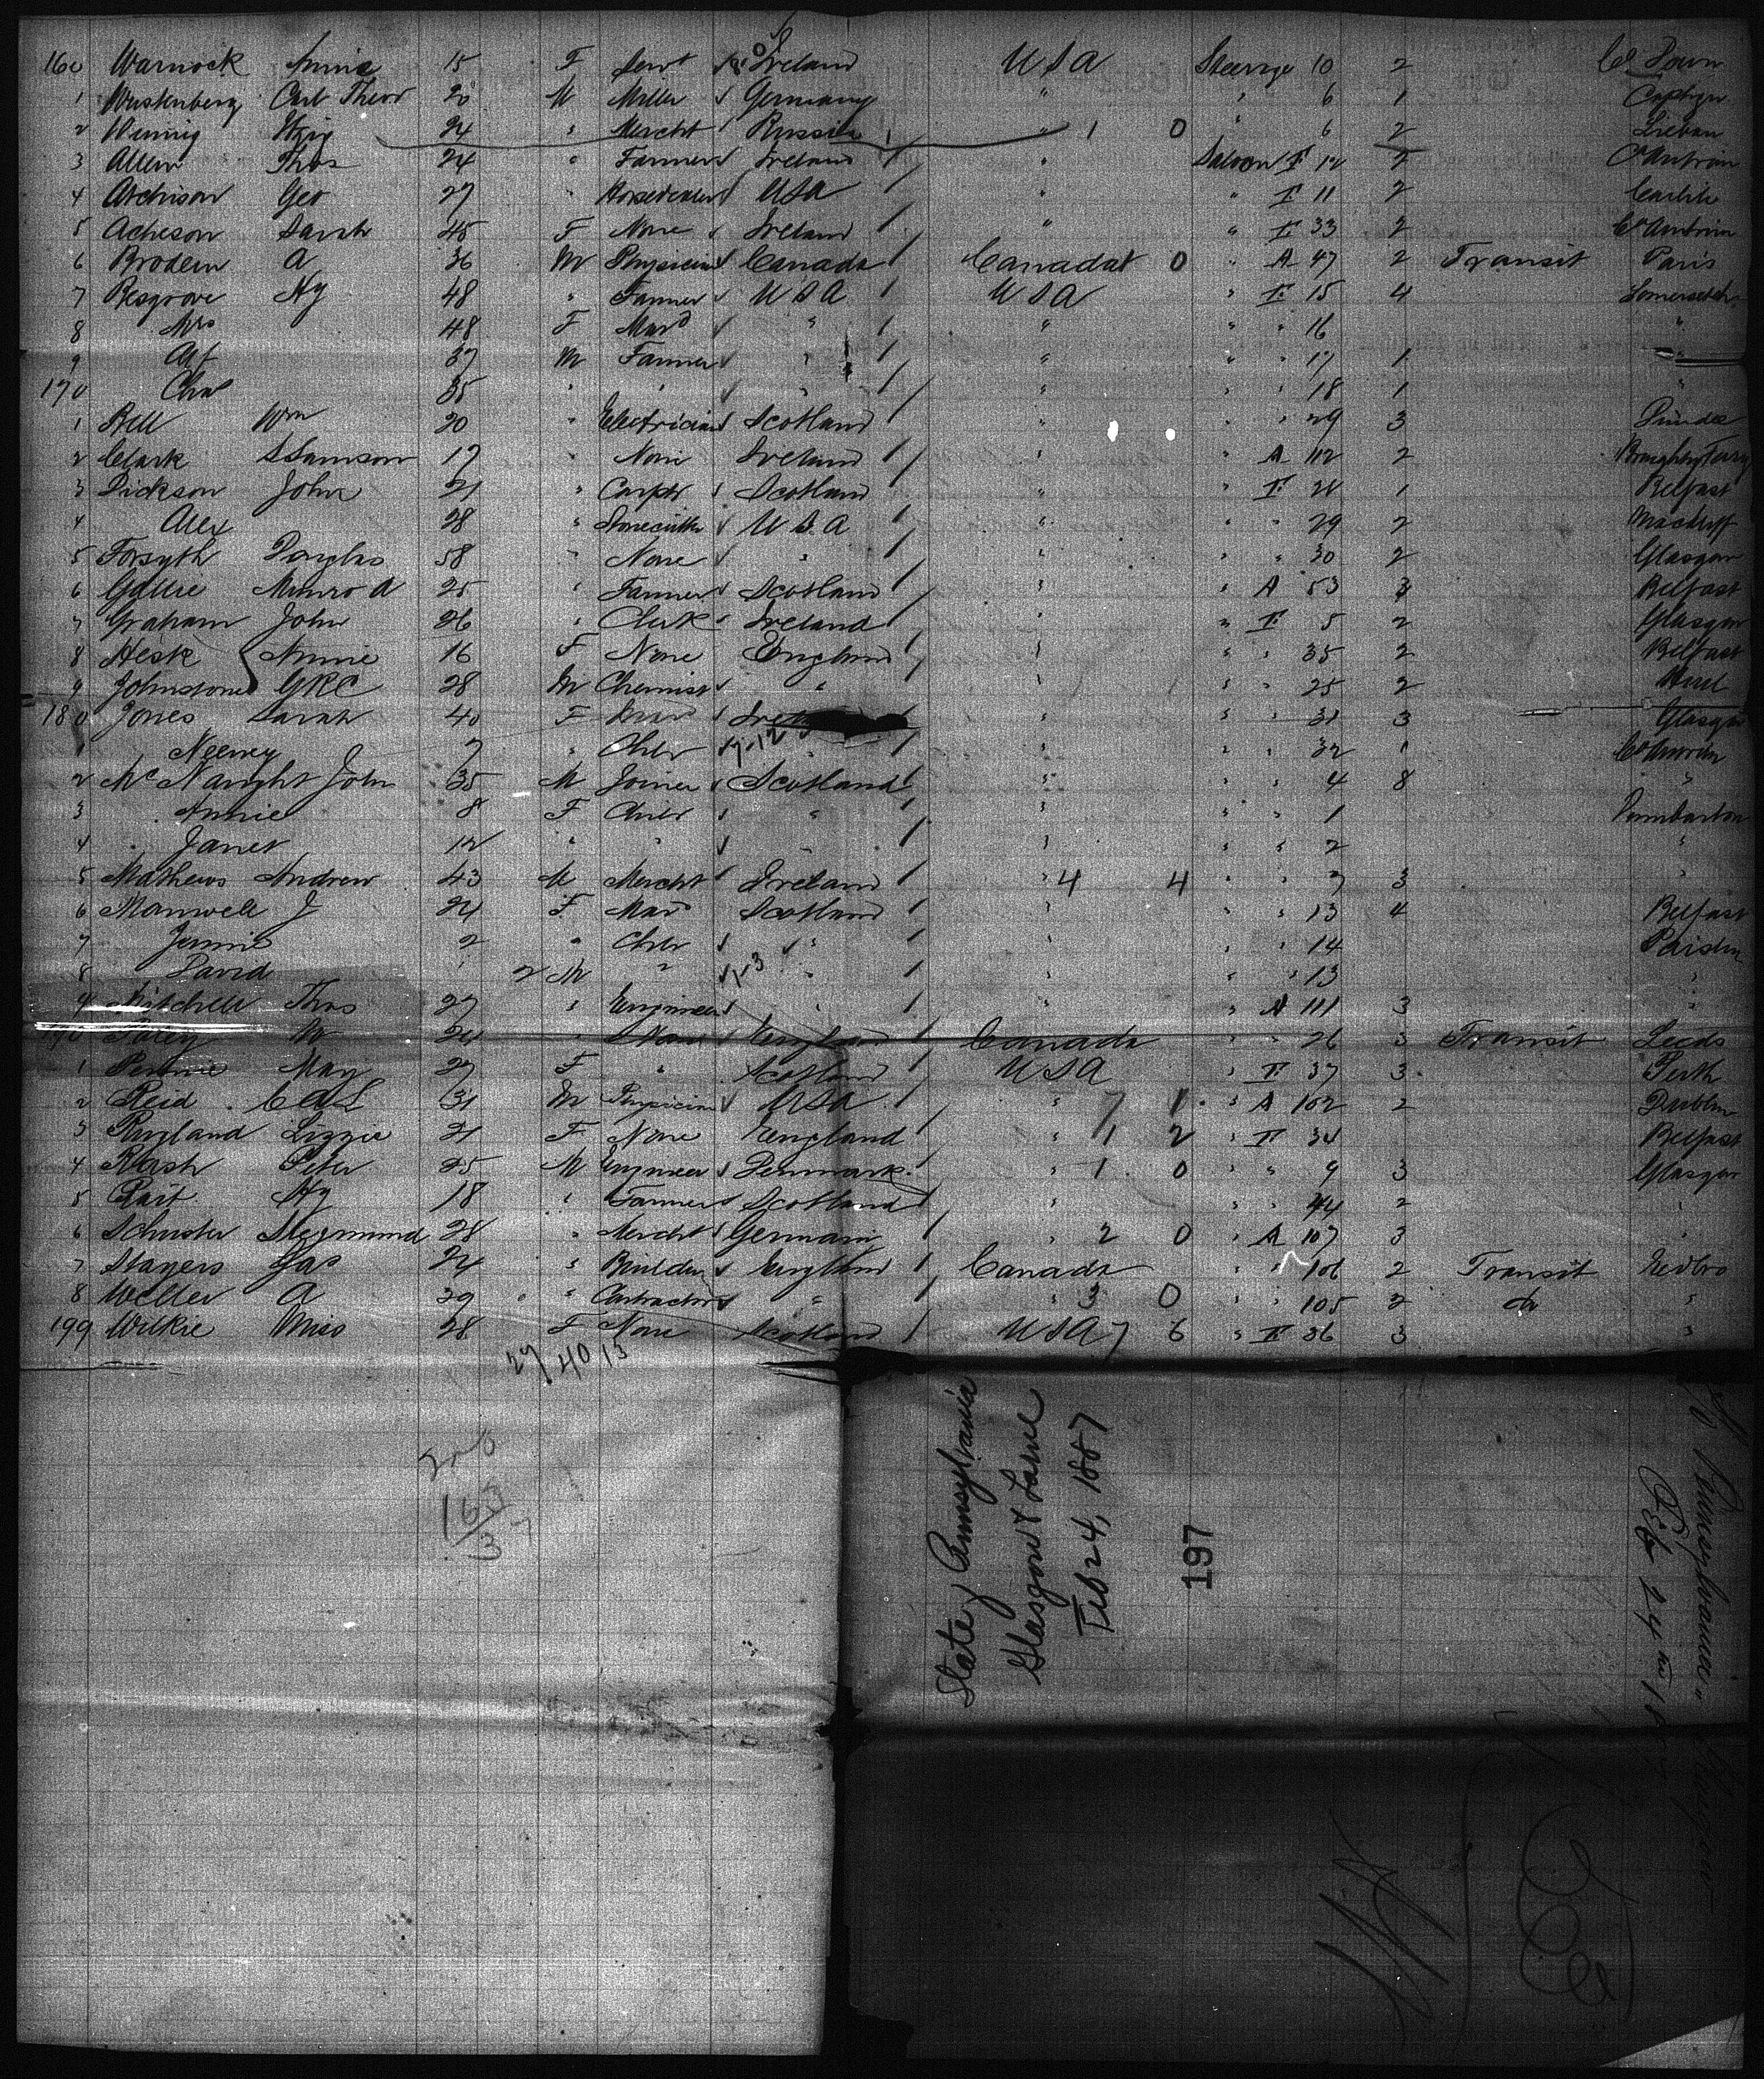 160 Warnock Annie 15 F Servt Ireland USA Steerage 10 2 Co Down
1 Wustenberg Carl Theor 20 M Miller Germany " " 6 1
2 24 " Mercht Russia " 1 0 " 6 2 Liebau
3 Allen Thos 24 " Farmer Ireland " Saloon II 12 2 Co Antrim
4 Atchison Geo 27 " Horsedealer USA " " II 11 2
5 Acheson Sarah 45 F None Ireland " " II 33 2 Co Antrim
6 A 36 M Physician Canada Canada 1 0 " A 47 2 Transit Paris
7 Besgrove Hy 48 " Farmer USA USA " II 15 4
8 Mrs 48 F Mard " " " " 16 "
9 Alf 37 M Farmer " " " " 17 1 "
170 Chas 35 " " " " " " 18 1 "
1 Bell Wm 20 " Electrician Scotland " " " 29 3 Dundee
2 Clark S Samson 17 " None Ireland " " A 112 2
3 Dickson John 21 " Carptr Scotland " " II 28 1 Belfast
4 Alex 28 " Stonecutter USA " " " 29 2 Macduff
5 Forsyth Douglas 58 " None " " " " 30 2 Glasgow
6 Munro A 25 " Farmer Scotland " " A 53 Belfast
7 Graham John 26 " Clerk Ireland " " II 5 2 Glasgow
8 Hesk Annie 16 F None England " " " 35 2 Belfast
9 Johnstone GRC 28 M Chemist " " " " 25 2
180 Jones Sarah 40 F " " " 31 3 Glasgow
1 7 " " " " " 32 1 Co Antrim
2 McNaught John 35 M Joiner Scotland " " " 4 8 "
3 Annie 8 F Child " " " " 1 Dumbarton
4 Janet 12 " " " " " " 2 "
5 Mathews Andrew 43 M Mercht Ireland " 4 4 " " 7 3 "
6 Manwell J 24 F Mard Scotland " " " 13 4 Belfast
7 Jennie 2 " Child " " " " 14
8 David 2 M " " " " " 13 "
9 Mitchell Thos 27 " Engineer " " " A 111 3 "
24 " None England Canada " " 26 3 Transit Leeds
1 May 27 F " Scotland USA " II 37 3 Perth
2 Reid C A L 31 M Physician USA " 7 1 " A 102 2 Dublin
3 Ryland Lizzie 21 F None England " 1 2 " II 34 Belfast
4 Rash Peter 25 M Engineer Denmark " 1 0 " " 9 3 Glasgow
5 Rait Hy 18 " Farmer Scotland " " " 44 2 "
6 Schuster Siegmund 28 " Mercht Germany " 2 0 " A 107 3 "
7 Stayers Jas 24 " Builder England Canada " " 106 2 Transit
8 Weller A 29 " Contractor " " 3 0 " " 105 2 do "
199 Wilkie Miss 28 F None Scotland USA 7 6 " II 36 3 "
27 40 13
200
163
37
State Pennsylvania
Glasgow & Larne
Feb 24, 1887
197
Pennsylvania
Feb 24th